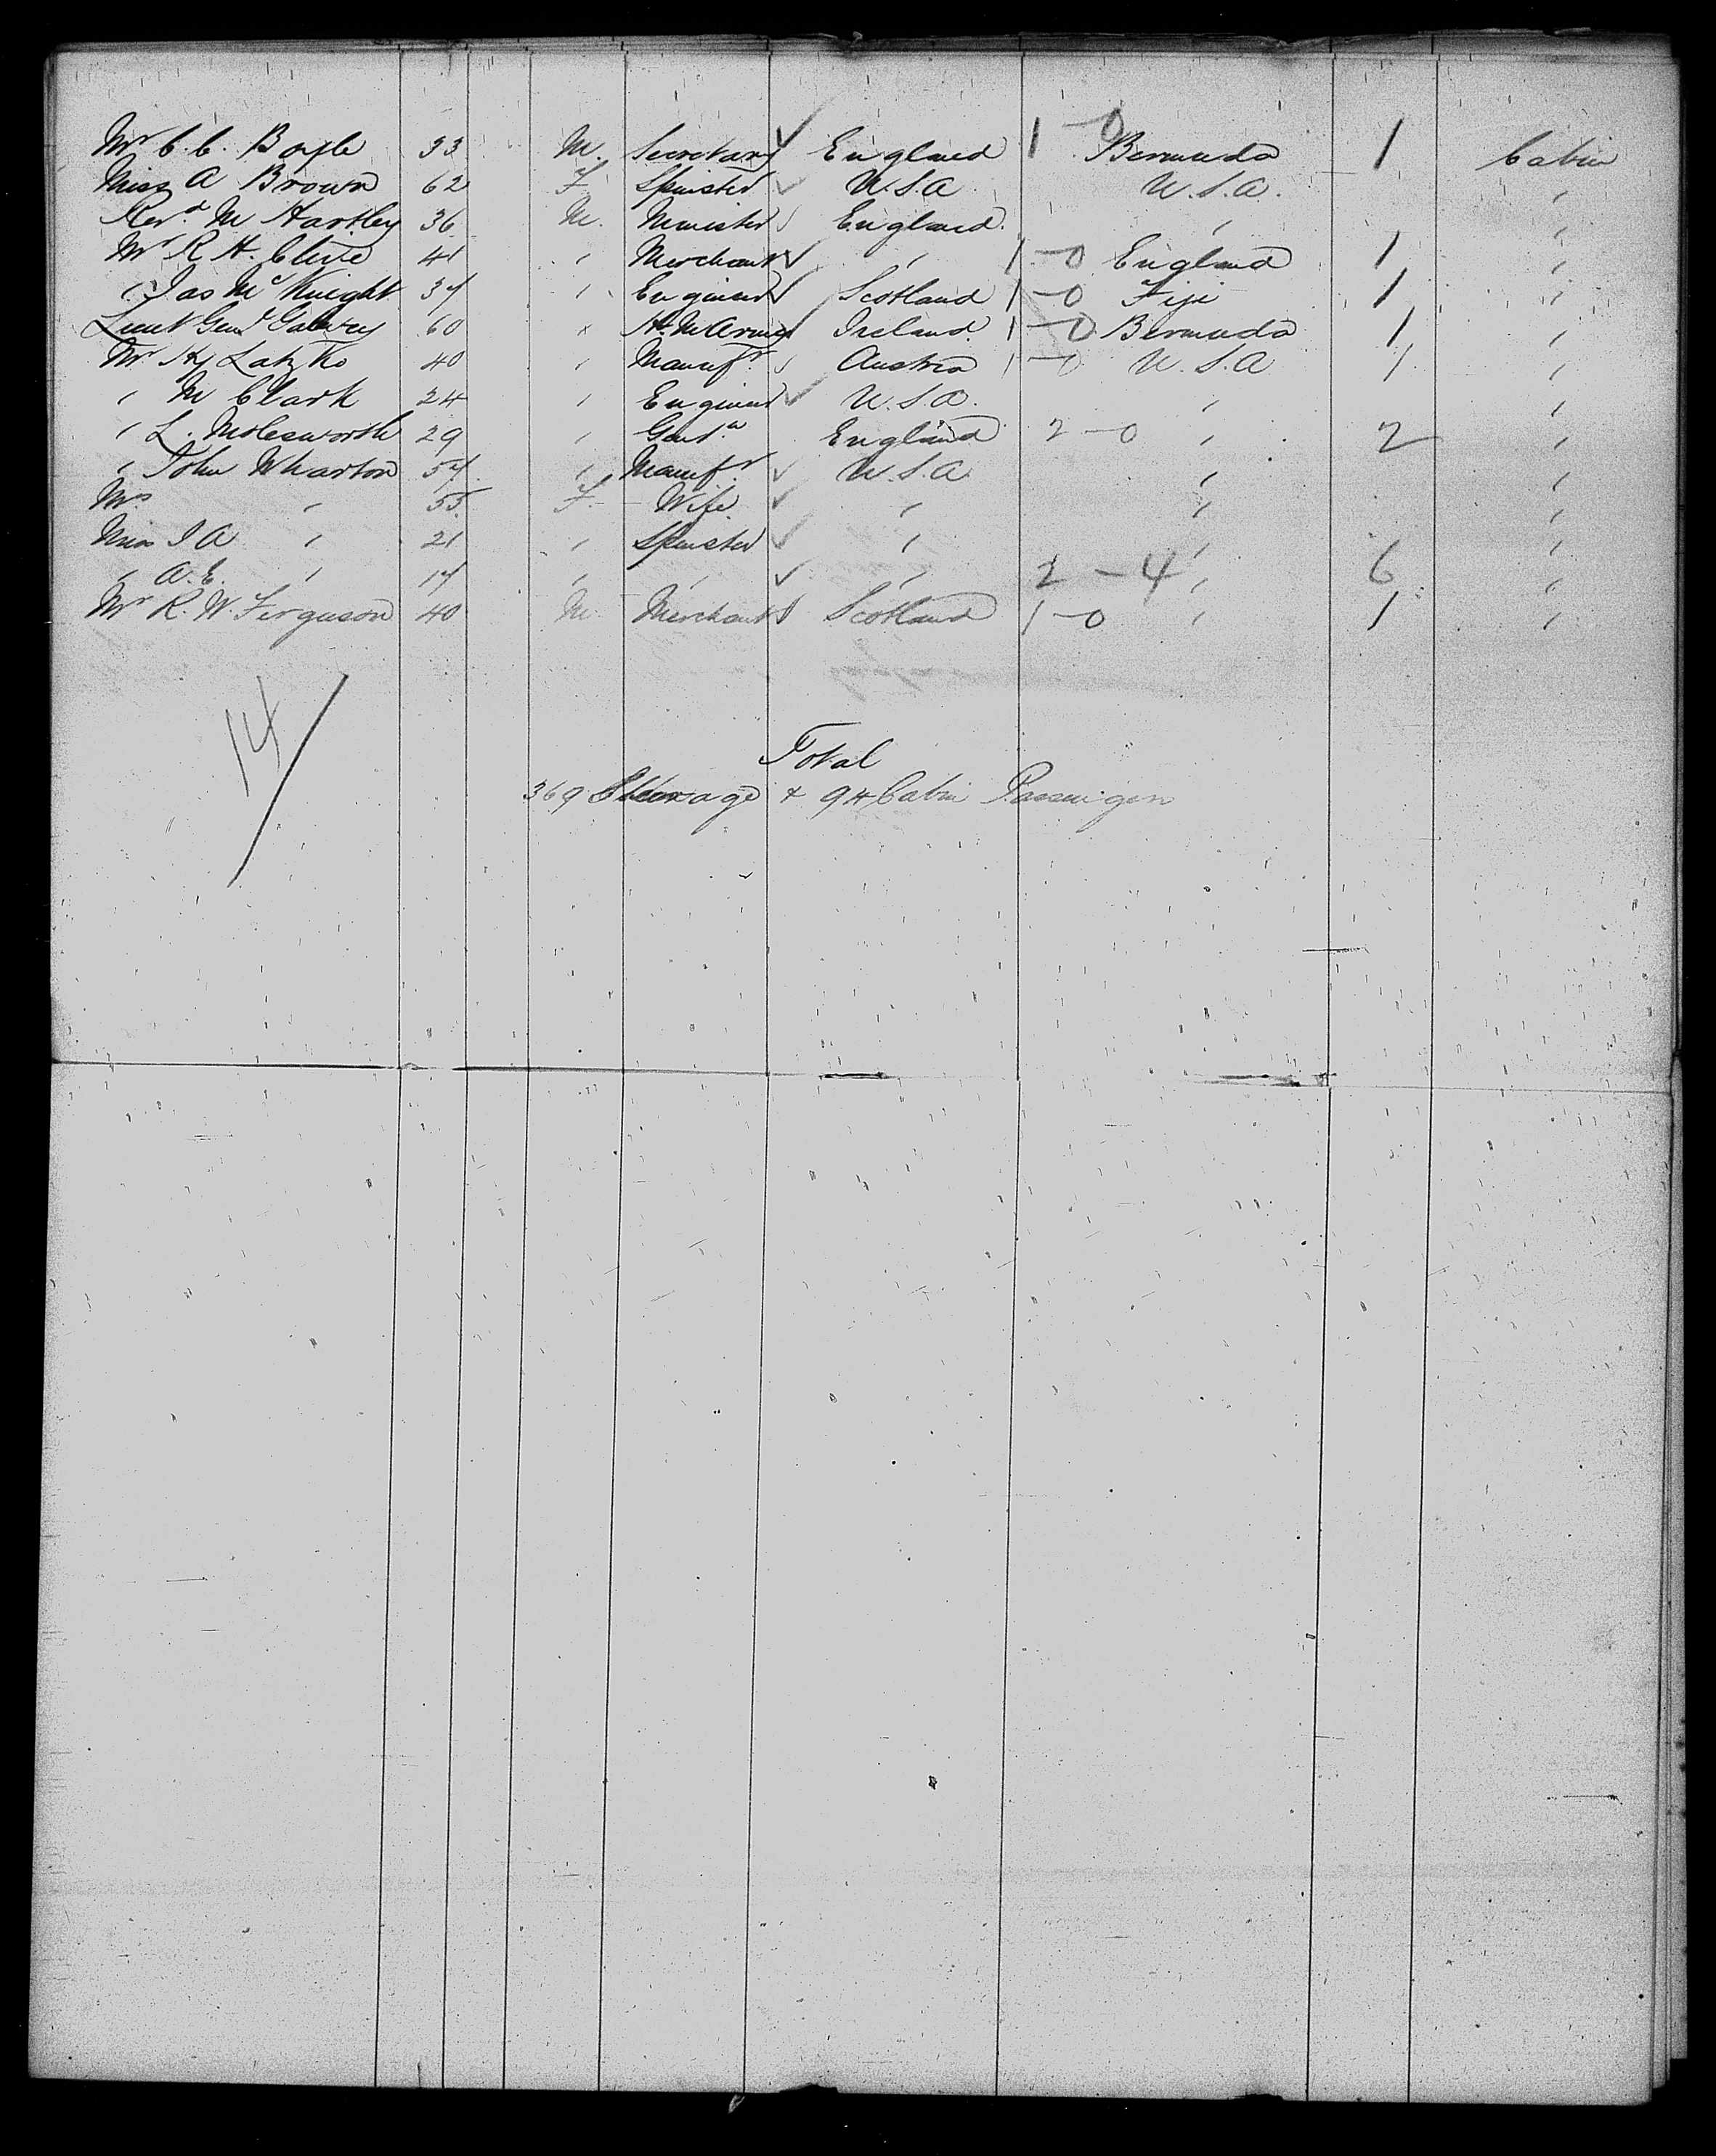 Mr C. C. Boyle 33 M. Secretary ✓ England 1-0 Bermuda 1 Cabin
Miss A Brown 62 F Spinster ✓ U.S.A U.S.A. "
Revd M Hartley 36 M. Minister ✓ England " "
Mr R H. Clive 41 " Merchant ✓ " 1-0 England 1 "
" Jas McKnight 37 " Engineer ✓ Scotland 1-0 Fiji 1 "
Lieut Genl Galwey 60 " H.M Army ✓ Ireland 1-0 Bermuda 1 "
Mr Hy Latzko 40 " Manufr ✓ Austria 1-0 U.S.A 1 "
" M Clark 24 " Engineer ✓ U.S.A. " "
" L. Molesworth 29 " Gent.n England 2-0 " 2 "
" John Wharton 57 " Manufr ✓ U.S.A " "
Mrs " 55 F Wife ✓ " " "
Miss J A " 21 " Spinster ✓ " " "
" A. E. " 17 " " ✓ " 2-4 " 6 "
Mr R. W. Ferguson 40 M Merchant ✓ Scotland 1-0 " 1 "
14/
Total
369 Steerage & 94 Cabin Passengers